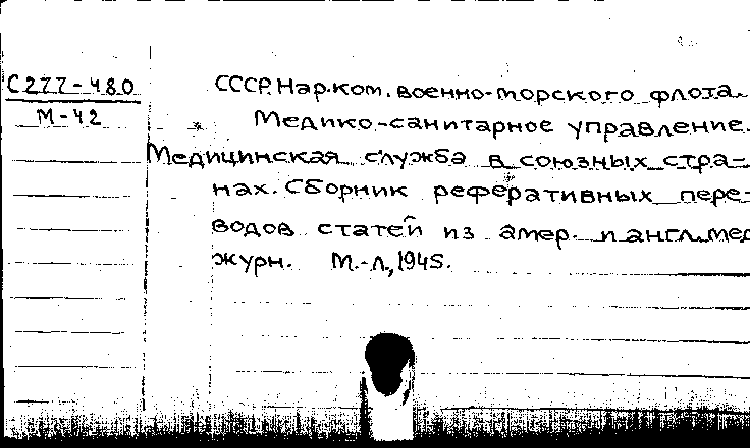 С277-480
М-42
СССР. Нар.ком. военно-морского флота.
Медико-санитарное управление.
Медицинская служба в союзных стра-
нах. Сборник реферативных пере-
водов статей из амер. и англ. мед
журн. М.-Л., 1945.